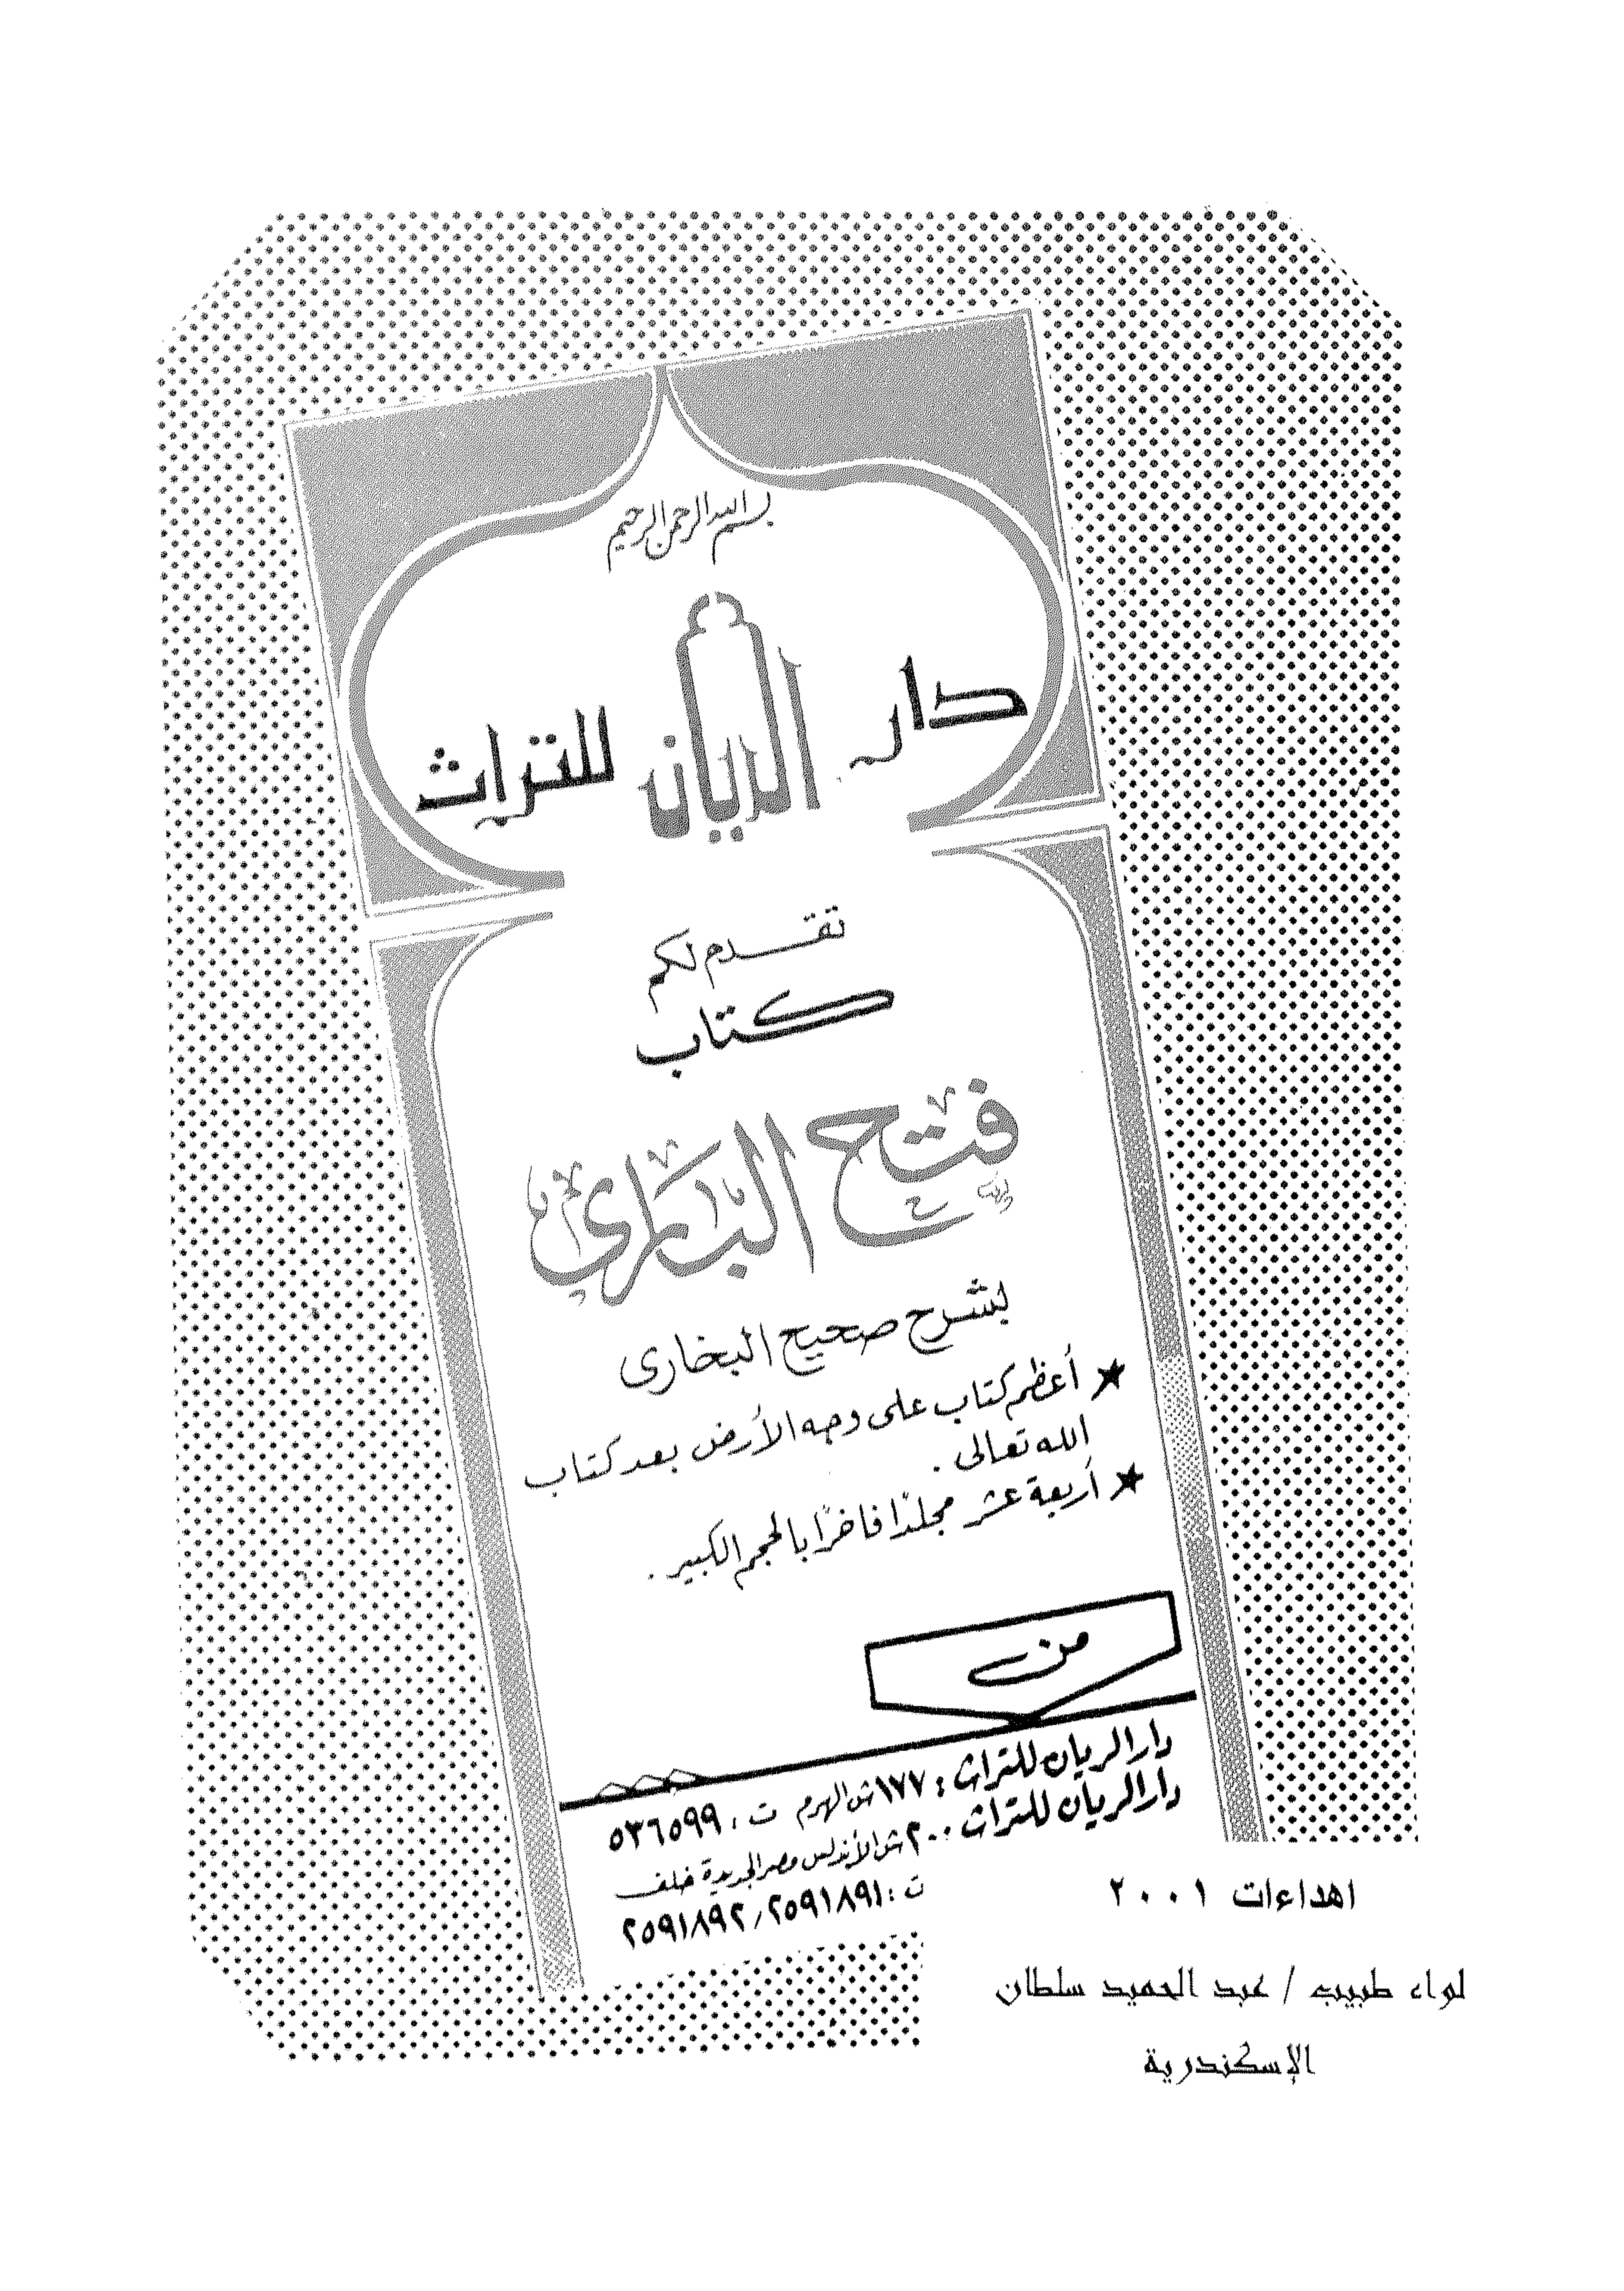 بسم الله الرحمن الرحيم
دار الريان للتراث
تقدم لكم
كتاب
فتح الباري
بشرح صحيح البخارى
★ أعظم كتاب على وجه الأرض بعد كتاب
الله تعالى .
★ أربعة عشر مجلدًا فاخرًا بالحجم الكبير .
من
دار الريان للتراث : ١٧٧ ش الهرم ت : ٥٣٦٥٩٩
دار الريان للتراث ٢٠٠ ش الأندلس مصر الجديدة خلف
ت : ٢٥٩١٨٩١ / ٢٥٩١٨٩٢
اهداءات ٢٠٠١
لواء طبيب / عبد الحميد سلطان
الإسكندرية